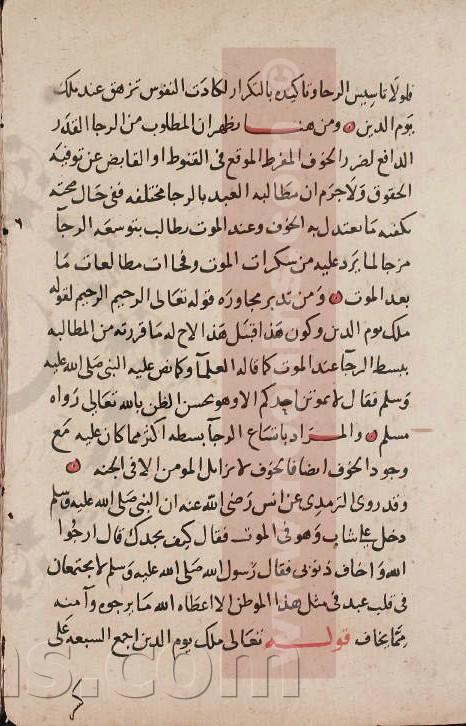 فلولا تاسيس الرجا وتاكيده بالتكرار لكادت النفوس تزهق عند ملك
يوم الدين ومن هنا يظهر ان المطلوب من الرجا القدر
الدافع لضرر الخوف المفرط الموقع فى القنوط او القابض عن توفيه
الحقوق ولا جرم ان مطالبه العبد بالرجا مختلفه ففى حال صحته
يكفيه ما يعتدل به الخوف وعند الموت يطالب بتوسعه الرجآ
مزجا لما يرد عليه من سكرات الموت وفجاات مطالعات ما
بعد الموت ومن تدبر مجاوره قوله تعالى الرحيم الرحيم لقوله
ملك يوم الدين وكون هذا قبل هذا لاح له ما قررته من المطالبه
ببسط الرجآ عند الموت كما قاله العلمآ وكما نص عليه النبى صلى الله عليه
وسلم فقال لا يموتن احدكم الا وهو يحسن الظن بالله تعالى رواه
مسلم والمراد باتساع الرجآ بسطه اكثر مما كان عليه مع
وجود الخوف ايضا فالخوف لا يزايل المومن الا فى الجنه
وقد روى الترمدى عن انس رضى الله عنه ان النبى صلى الله عليه وسلم
دخل على شاب وهو فى الموت فقال كيف تجدك قال ارجوا
الله واخاف ذنوبى فقال رسول الله صلى الله عليه وسلم لا يجتمعان
فى قلب عبد فى مثل هذا الموطن الا اعطاه الله ما يرجوه وآمنه
مما يخاف قوله تعالى ملك يوم الدين اجمع السبعه على
ns.com